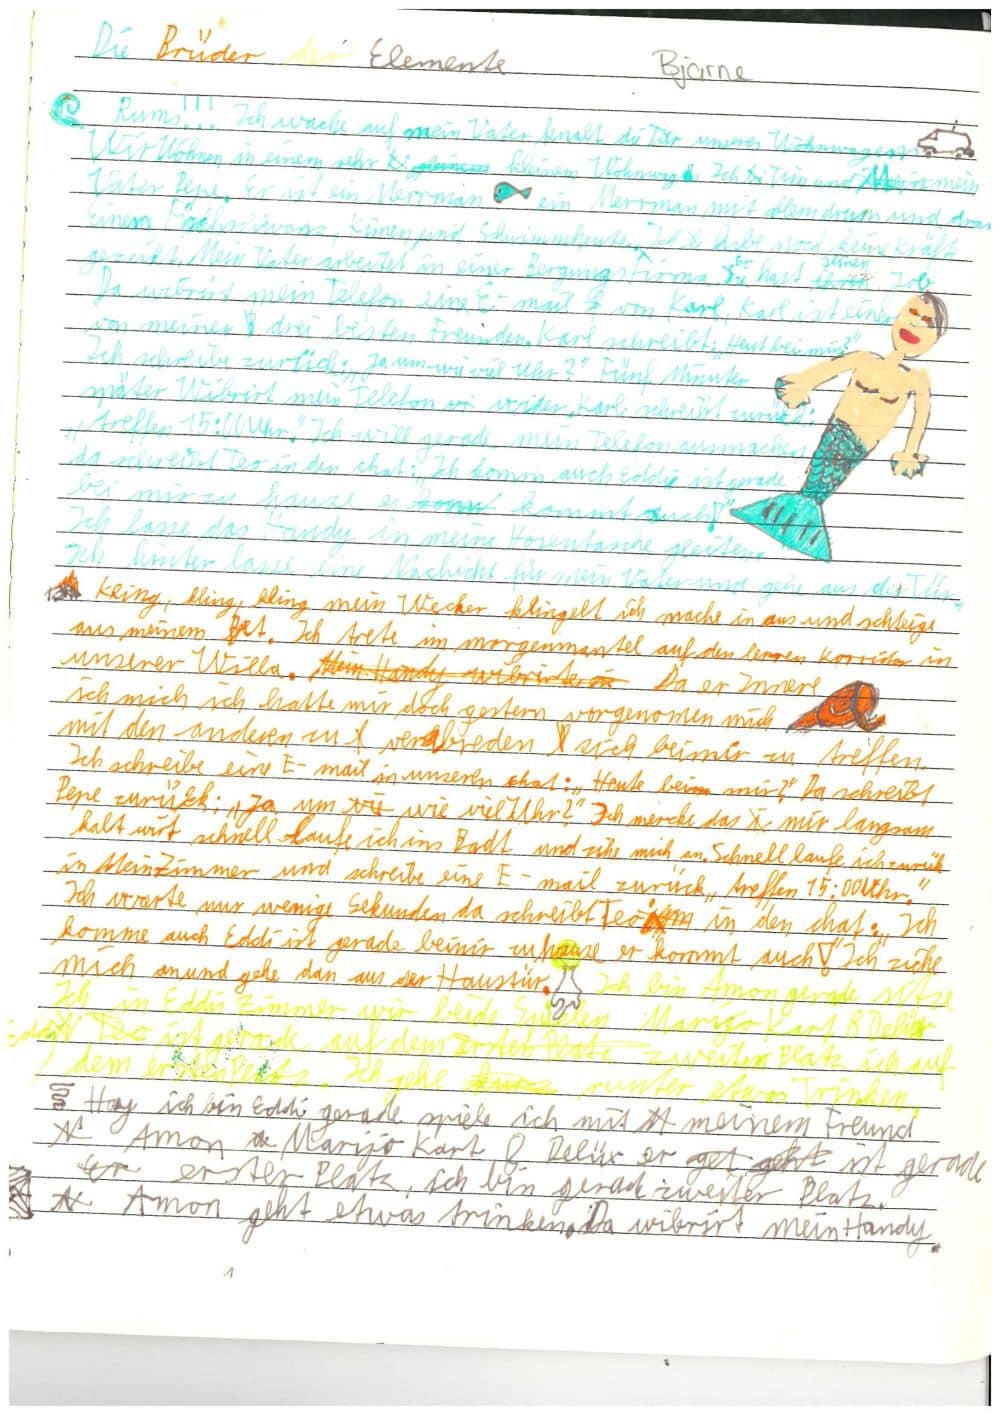 Die Brüder der Elemente Bjarne
Rums!!! Ich wache auf mein Vater knalt die Tür unseres Wohnwagens
Wir Wohnen in einem sehr kleinem Wohnwag. Ich Teis und mein
Vater Pepe. Er ist ein Merrman ein Merrman mit allem drum und dran
Einen schwanz, und Schwimmheute. Ich habe noch keine kräft
gezeickt. Mein Vater arbeitet in einer Bergungsfirma Er hast seinen Job
Da wibrirt mein Telefon eine E-mail von Karl, Karl ist einer
von meinen drei besten Freunden. Karl schreibt: „Heut bei mir?"
Ich schreibe zurück: „Ja um wie viel Uhr?" Fünf Minuten
später Wibrirt mein Telefon wider, Karl schreibt zurück:
„treffen 15:00 Uhr." Ich will gerade mein Telefon ausmachen
da schreibt Teo in den chat: „Ich komm auch Eddi ist gerade
bei mir zu hause er kommt auch!"
Ich lasse das Handy in meine Hosentasche gleiten.
Ich hinter lasse eine Nachicht für mein Vater und gehe aus die Tür.
Kling, kling, kling mein Wecker klingelt ich mache in aus und schteige
aus meinem Bet. Ich trete im morgenmantel auf den lerren Korridor in
unserer Willa. Mein Handy wibrirte Da er Innere
ich mich ich hatte mir doch gestern vorgenomen mich
mit den anderen zu verabreden sich beimir zu treffen.
Ich schreibe eine E-mail in unseren chat: „Heute beim mir?" Da schreibt
Pepe zurück: „Ja um wie viel Uhr?" Ich mercke das mir langsam
kalt wirt schnell laufe ich ins Badt und zihe mich an. Schnell laufe ich zurük
in Mein Zimmer und schreibe eine E-mail zurück „treffen 15:00 Uhr."
Ich warte nur wenige Sekunden da schreibt Teo in den chat: „Ich
komme auch Eddi ist gerade beimir zuhause er kommt auch! Ich zihe
mich an und gehe dan aus der Haustür. Ich bin Amon gerade sitze
Ich in Eddis Zimmer wir beide Spielen Marijo Kart 8 Delüx
Teo ist gerade auf dem zweiten Platz ich auf
dem ersten Platz. Ich gehe runter etwas Trinken.
Hay ich bin Eddi gerade spiele ich mit meinem Freund
Amon Marijo Kart 8 Delüx er ist gerade
erster Platz, ich bin gerade zweiter Platz.
Amon geht etwas trinken. Da wibrirt mein Handy.
1